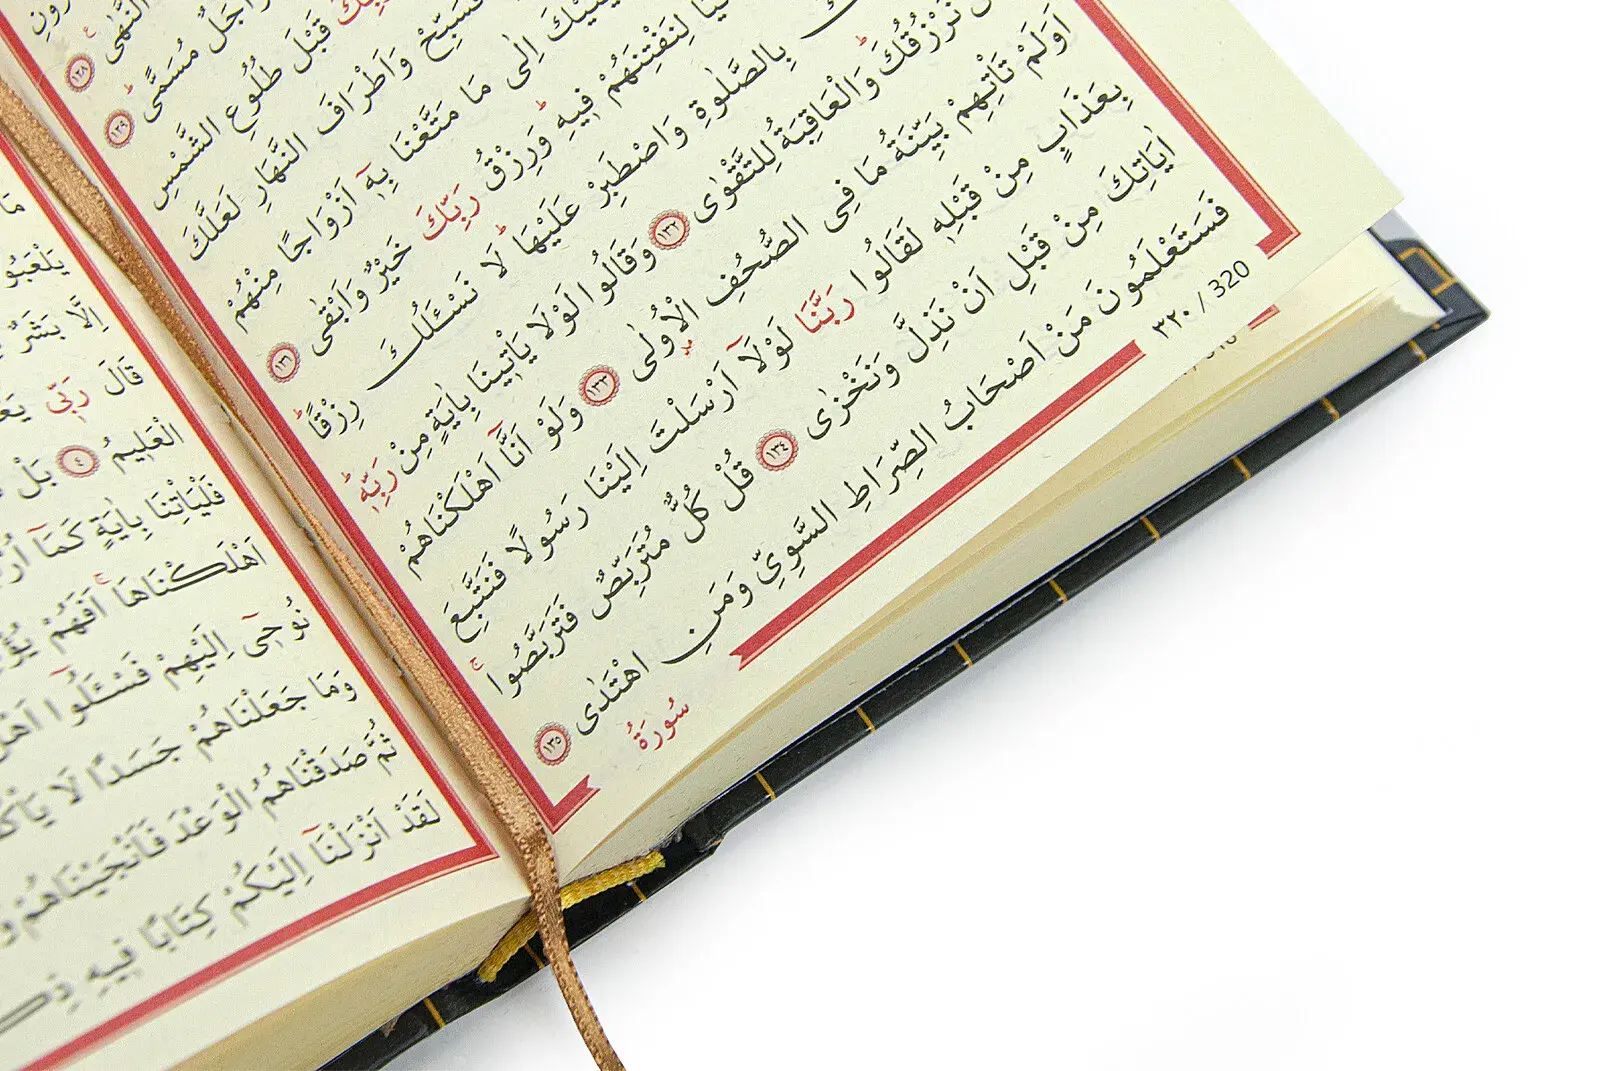 النُّهٰى ١٢٨
وَاَجَلٌ مُسَمًّى ١٢٩
قَبْلَ طُلُوعِ الشَّمْسِ
فَسَبِّحْ وَاَطْرَافَ النَّهَارِ لَعَلَّكَ
اِلٰى مَا مَتَّعْنَا بِه۪ٓ اَزْوَاجًا مِنْهُمْ
لِنَفْتِنَهُمْ ف۪يهِ وَرِزْقُ رَبِّكَ خَيْرٌ وَاَبْقٰى ١٣١
بِالصَّلٰوةِ وَاصْطَبِرْ عَلَيْهَا لَا نَسْـَٔلُكَ رِزْقًا
نَرْزُقُكَ وَالْعَاقِبَةُ لِلتَّقْوٰى ١٣٢ وَقَالُوا لَوْلَا يَأْت۪ينَا بِاٰيَةٍ مِنْ رَبِّه۪
اَوَلَمْ تَأْتِهِمْ بَيِّنَةُ مَا فِي الصُّحُفِ الْاُولٰى ١٣٣ وَلَوْ اَنَّٓا اَهْلَكْنَاهُمْ
بِعَذَابٍ مِنْ قَبْلِه۪ لَقَالُوا رَبَّنَا لَوْلَٓا اَرْسَلْتَ اِلَيْنَا رَسُولًا فَنَتَّبِعَ
اٰيَاتِكَ مِنْ قَبْلِ اَنْ نَذِلَّ وَنَخْزٰى ١٣٤ قُلْ كُلٌّ مُتَرَبِّصٌ فَتَرَبَّصُوا
فَسَتَعْلَمُونَ مَنْ اَصْحَابُ الصِّرَاطِ السَّوِيِّ وَمَنِ اهْتَدٰى ١٣٥
٣٢٠ / 320
سُورَةُ
مَا
اِلَّا بَشَرٌ
قَالَ رَبّ۪ي
الْعَل۪يمُ ٤ بَلْ
فَلْيَأْتِنَا بِاٰيَةٍ كَمَٓا
اَهْلَكْنَاهَا اَفَهُمْ
نُوح۪ٓي اِلَيْهِمْ فَسْـَٔلُٓوا اَهْلَ
وَمَا جَعَلْنَاهُمْ جَسَدًا لَا
ثُمَّ صَدَقْنَاهُمُ الْوَعْدَ فَاَنْجَيْنَاهُمْ وَ
لَقَدْ اَنْزَلْنَٓا اِلَيْكُمْ كِتَابًا ف۪يهِ